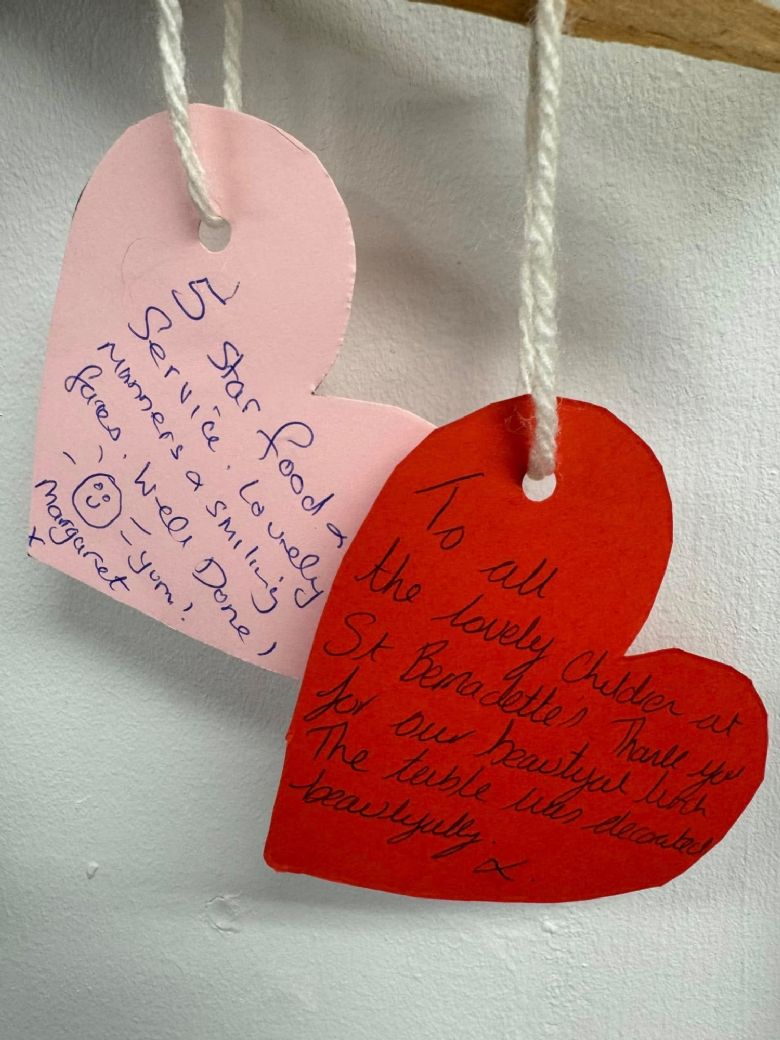 5 Star food &
Service. Lovely
Manners & smiling
faces. Well Done,
☺ = yum!
Margaret
x
To all
the lovely children at
St Bernadette's Thank you
for our beautiful lunch
The table was decorated
beautifully.
x